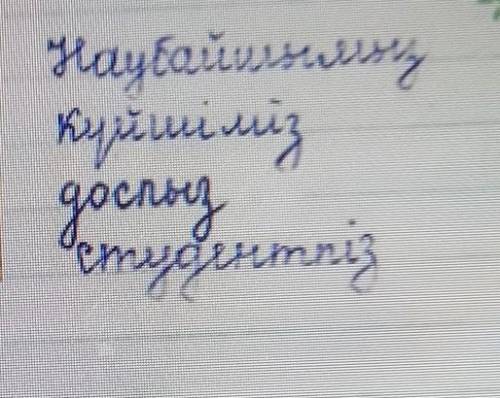 Наубайшымыз
Күйшіміз
доспыз
студентпіз